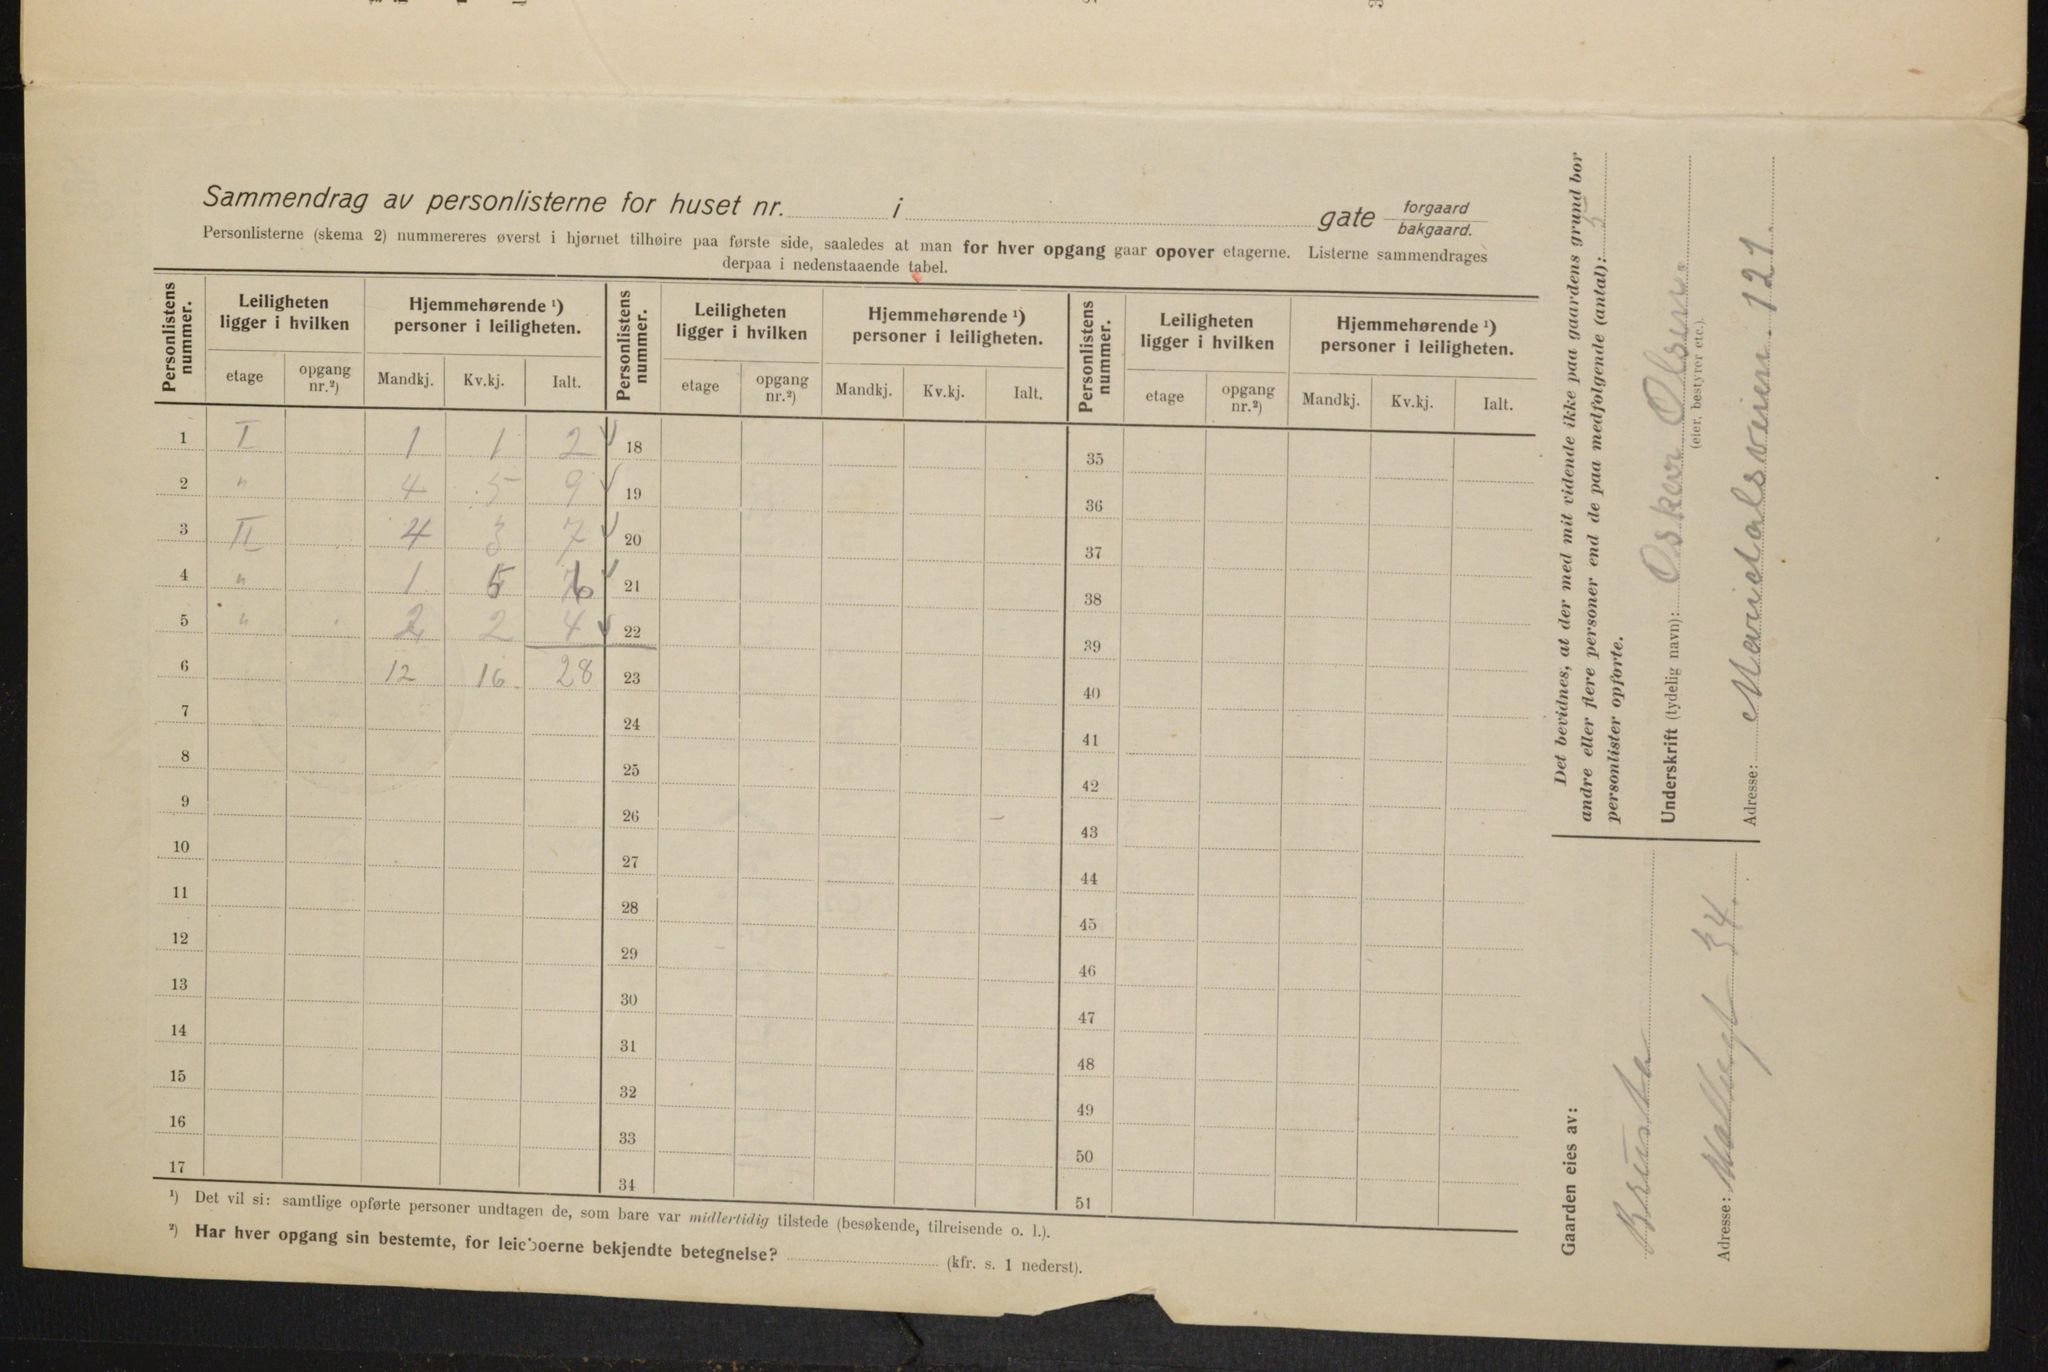 Sammendrag av personlisterne for huset nr. i gate forgaard bakgaard.
Personlisterne (skema 2) nummereres øverst i hjørnet tilhøire paa første side, saaledes at man for hver opgang gaar opover etagerne. Listerne sammendrages
derpaa i nedenstaaende tabel.
Personlistens nummer. Leiligheten ligger i hvilken Hjemmehørende ¹) personer i leiligheten. Personlistens nummer. Leiligheten ligger i hvilken Hjemmehørende ¹) personer i leiligheten. Personlistens nummer. Leiligheten ligger i hvilken Hjemmehørende ¹) personer i leiligheten.
etage opgang nr.²) Mandkj. Kv.kj. Ialt. etage opgang nr.²) Mandkj. Kv.kj. Ialt. etage opgang nr.²) Mandkj. Kv.kj. Ialt.
1 I 1 1 2 ✓ 18 35
2 " 4 5 9 ✓ 19 36
3 II 4 3 7 ✓ 20 37
4 " 1 5 6 ✓ 21 38
5 " 2 2 4 ✓ 22 39
6 12 16 28 23 40
7 24 41
8 25 42
9 26 43
10 27 44
11 28 45
12 29 46
13 30 47
14 31 48
15 32 49
16 33 50
17 34 51
¹) Det vil si: samtlige opførte personer undtagen de, som bare var midlertidig tilstede (besøkende, tilreisende o. l.).
²) Har hver opgang sin bestemte, for leieboerne bekjendte betegnelse? (kfr. s. 1 nederst).
Det bevidnes, at der med mit vidende ikke paa gaardens grund bor
andre eller flere personer end de paa medfølgende (antal): 5
personlister opførte.
Underskrift (tydelig navn): Oskar Olsen.
(eier, bestyrer etc.).
Adresse: Maridalsveien 121.
Gaarden eies av:
Adresse: 34.